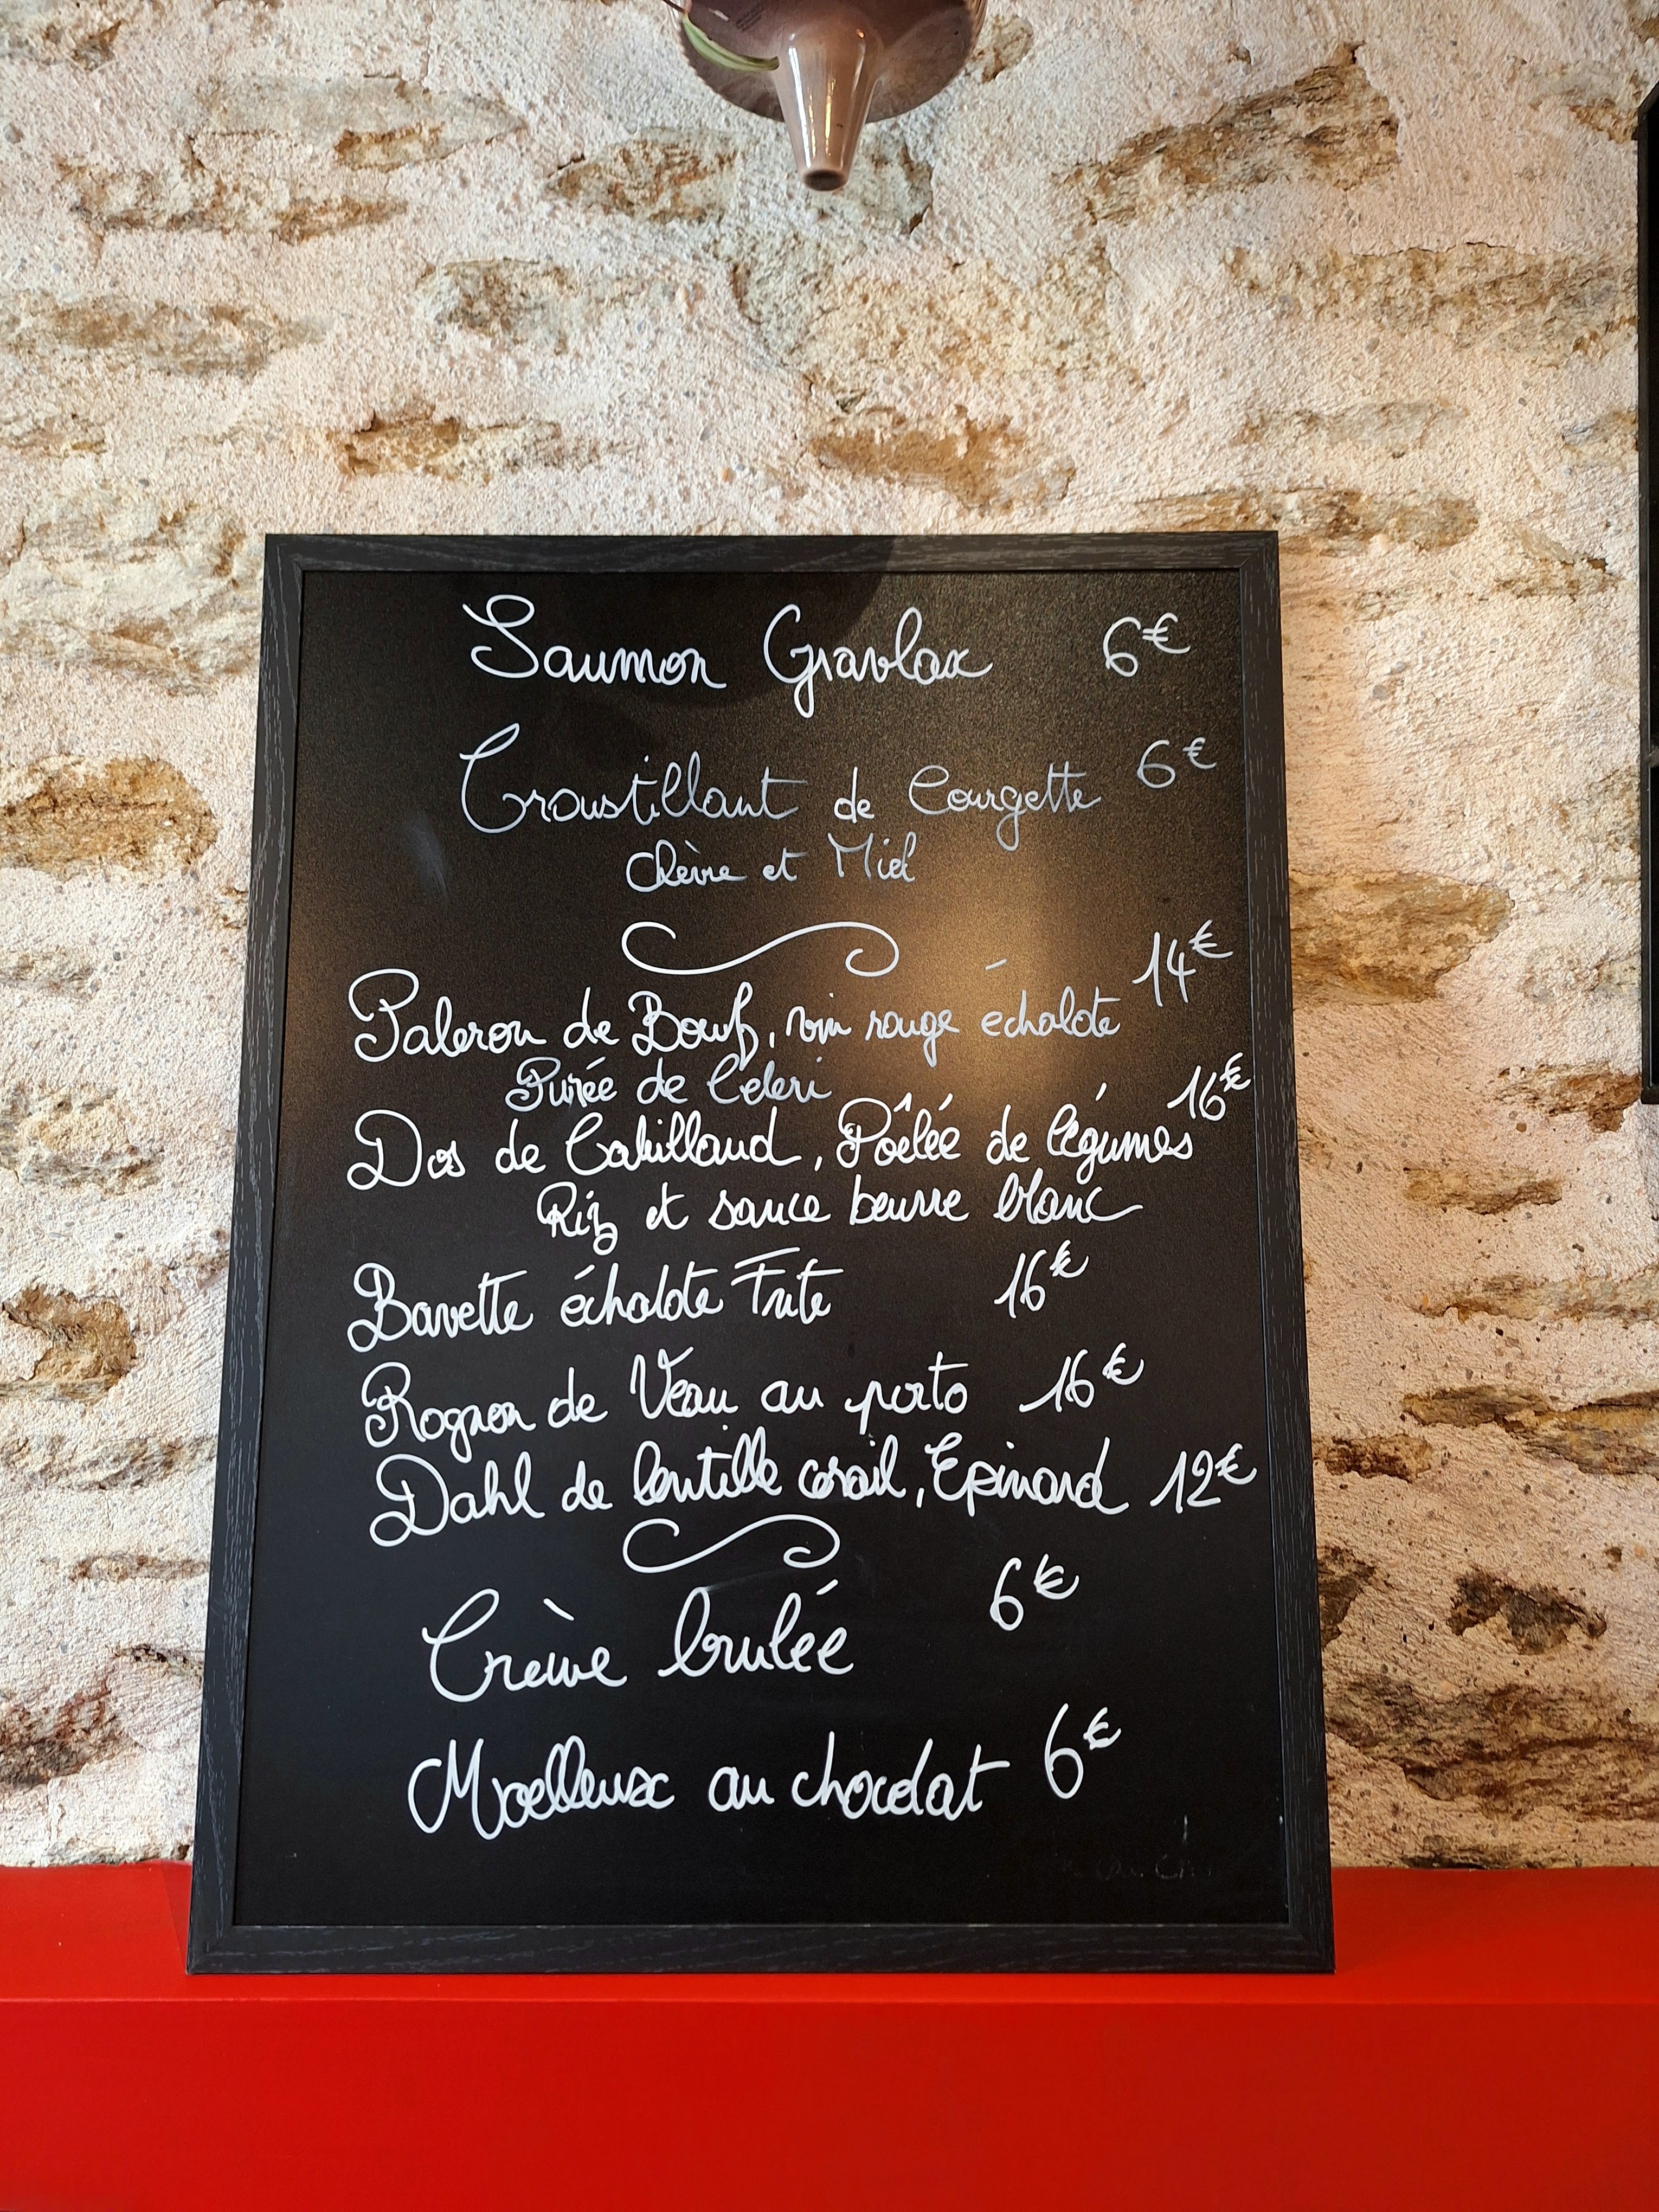 Saumon Gravlax 6€
Croustillant de Courgette 6€
Chèvre et Miel
Paleron de Boeuf, vin rouge échalote 14€
Purée de Céleri
Dos de Cabillaud, Pôêlée de légumes 16€
Riz et sauce beurre blanc
Bavette échalote Frite 16€
Rognon de Veau au porto 16€
Dahl de lentille corail, Epinard 12€
Crème brulée 6€
Moelleux au chocolat 6€